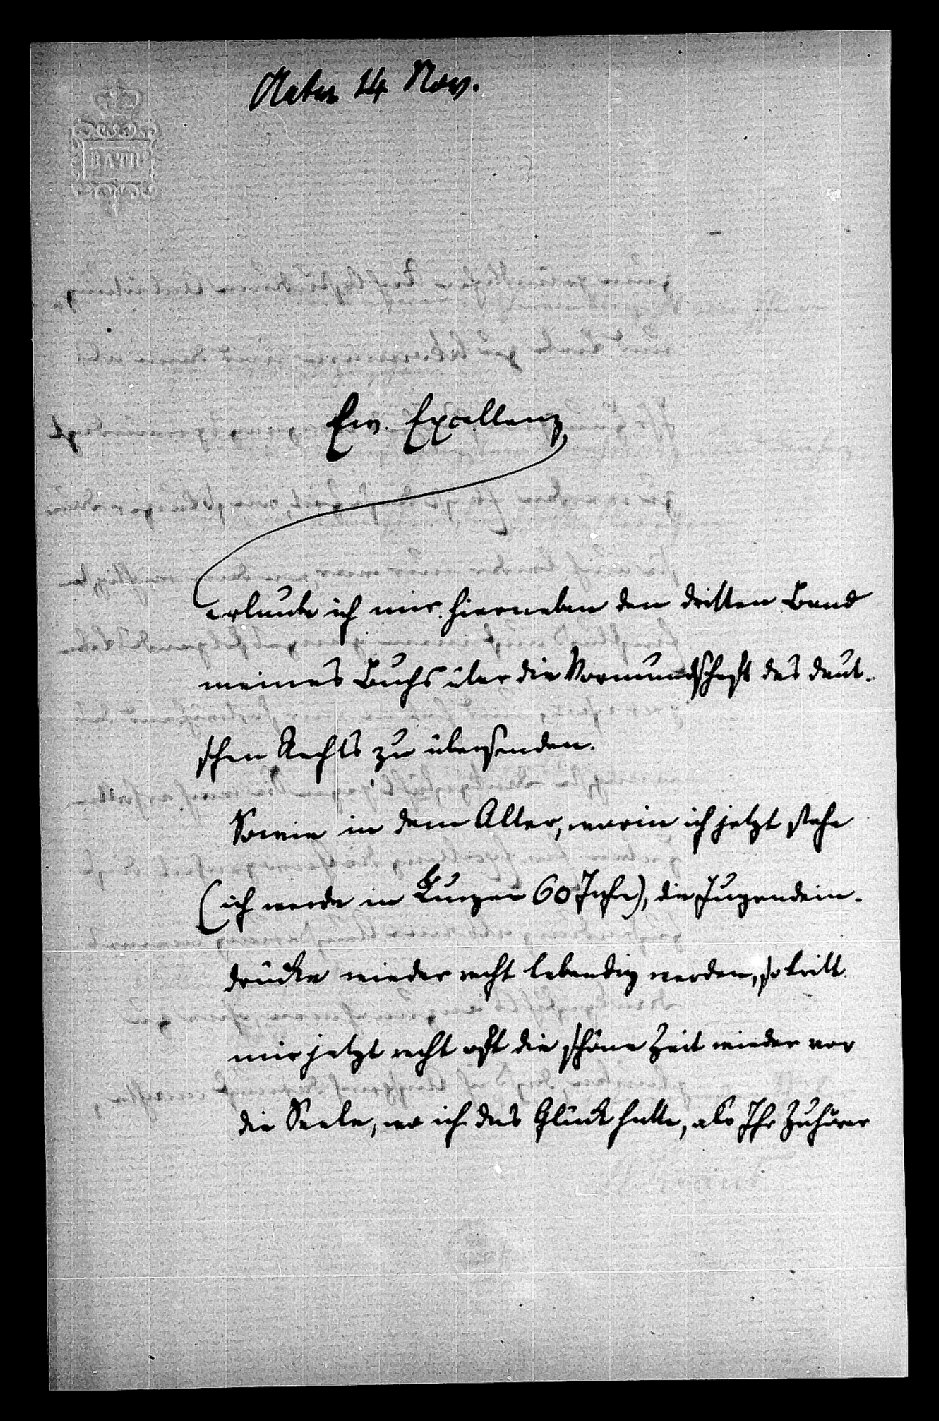 14 Nov.
BATH
Ew. Excellenz
erlaube ich mir hierneben den dritten Band
meines Buchs über die Vormundschaft des deut-
schen Rechts zu übersenden.
Sowie in dem Alter, worin ich jetzt stehe
(ich werde in Kurzem 60 Jahr), die Jugendein-
drücke wieder recht lebendig werden, so tritt
mir jetzt recht oft die schöne Zeit wieder vor
die Seele, wo ich das Glück hatte, als Ihr Zuhörer